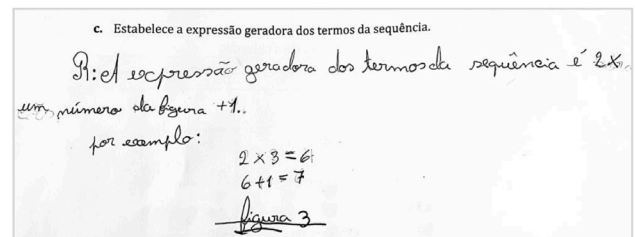 c. Estabelece a expressão geradora dos termos da sequência.
R: A expressão geradora dos termos da sequência é 2x
um número da figura +1.
por exemplo:
2 x 3 = 6
6 + 1 = 7
figura 3